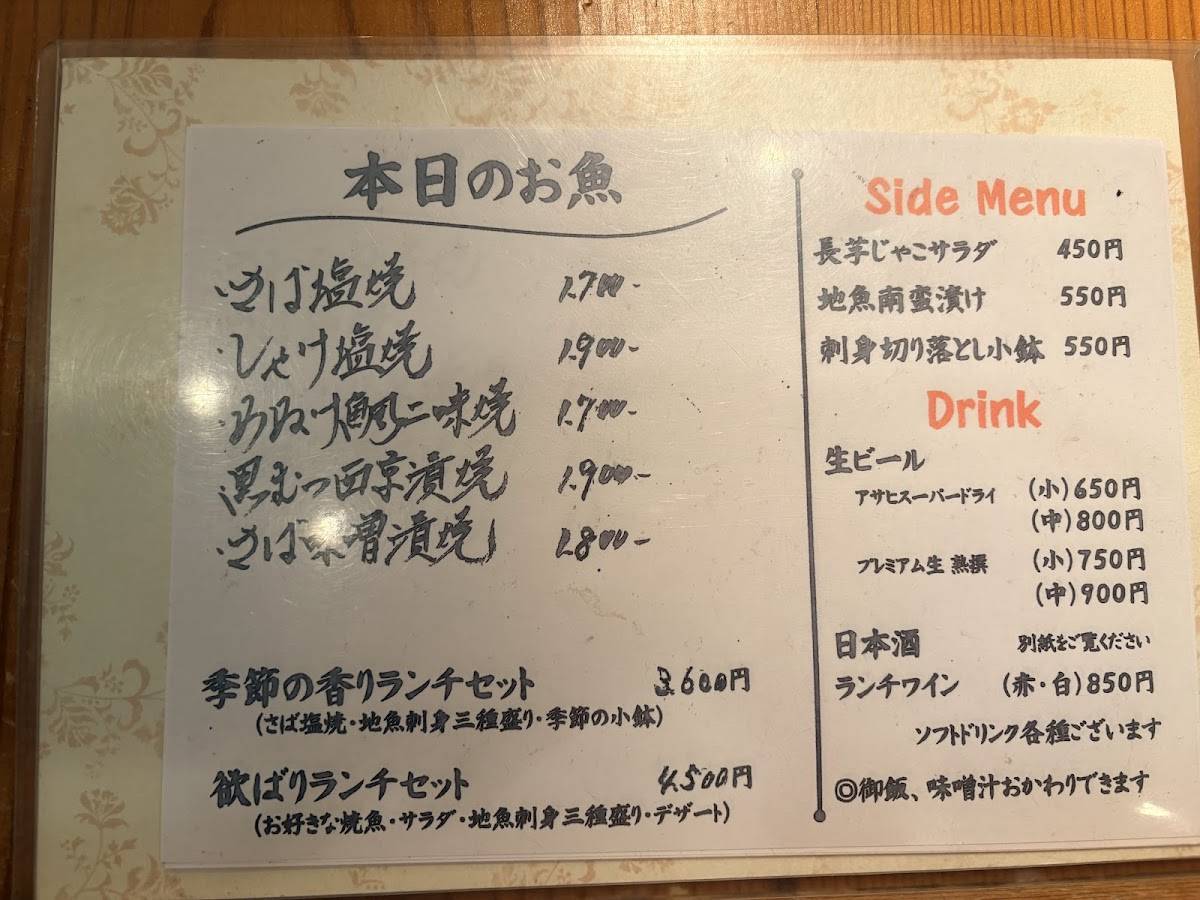 本日のお魚
さば塩焼 1.700-
しゃけ塩焼 1.900-
二味焼 1.700-
黒むつ西京漬焼 1.900-
さば味噌漬焼 1.800-
季節の香りランチセット 3.600円
(さば塩焼・地魚刺身三種盛り・季節の小鉢)
欲ばりランチセット 4.500円
(お好きな焼魚・サラダ・地魚刺身三種盛り・デザート)
Side Menu
長芋じゃこサラダ 450円
地魚南蛮漬け 550円
刺身切り落とし小鉢 550円
Drink
生ビール
アサヒスーパードライ (小)650円
(中)800円
プレミアム生 熟撰 (小)750円
(中)900円
日本酒 別紙をご覧ください
ランチワイン (赤・白)850円
ソフトドリンク各種ございます
◎御飯、味噌汁おかわりできます